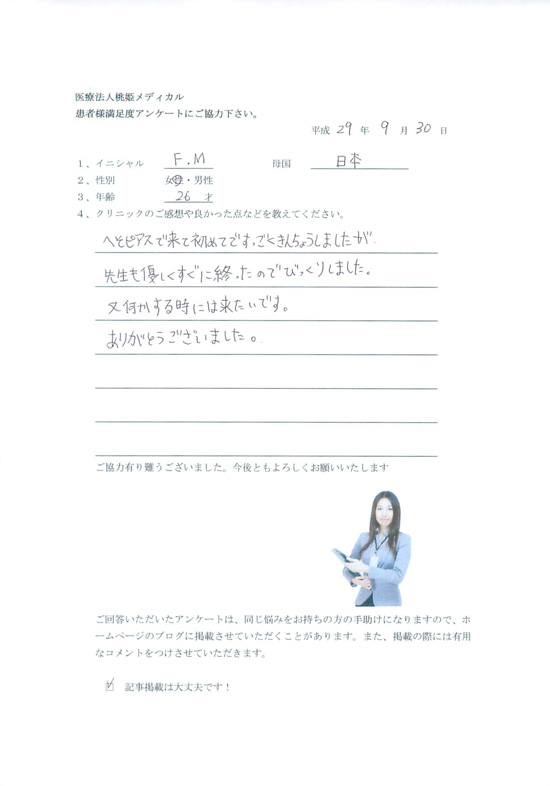 医療法人桃姫メディカル
患者様満足度アンケートにご協力下さい。
平成 29 年 9 月 30 日
1、イニシャル F.M 母国 日本
2、性別 女性・男性
3、年齢 26 才
4、クリニックのご感想や良かった点などを教えてください。
へそピアスで来て初めてです。ごくきんちょうしましたが
先生も優しくすぐに終ったのでびっくりしました。
又何かする時には来たいです。
ありがとうございました。
ご協力有り難うございました。今後ともよろしくお願いいたします
ご回答いただいたアンケートは、同じ悩みをお持ちの方の手助けになりますので、ホ
ームページのブログに掲載させていただくことがあります。また、掲載の際には有用
なコメントをつけさせていただきます。
☑ 記事掲載は大丈夫です！